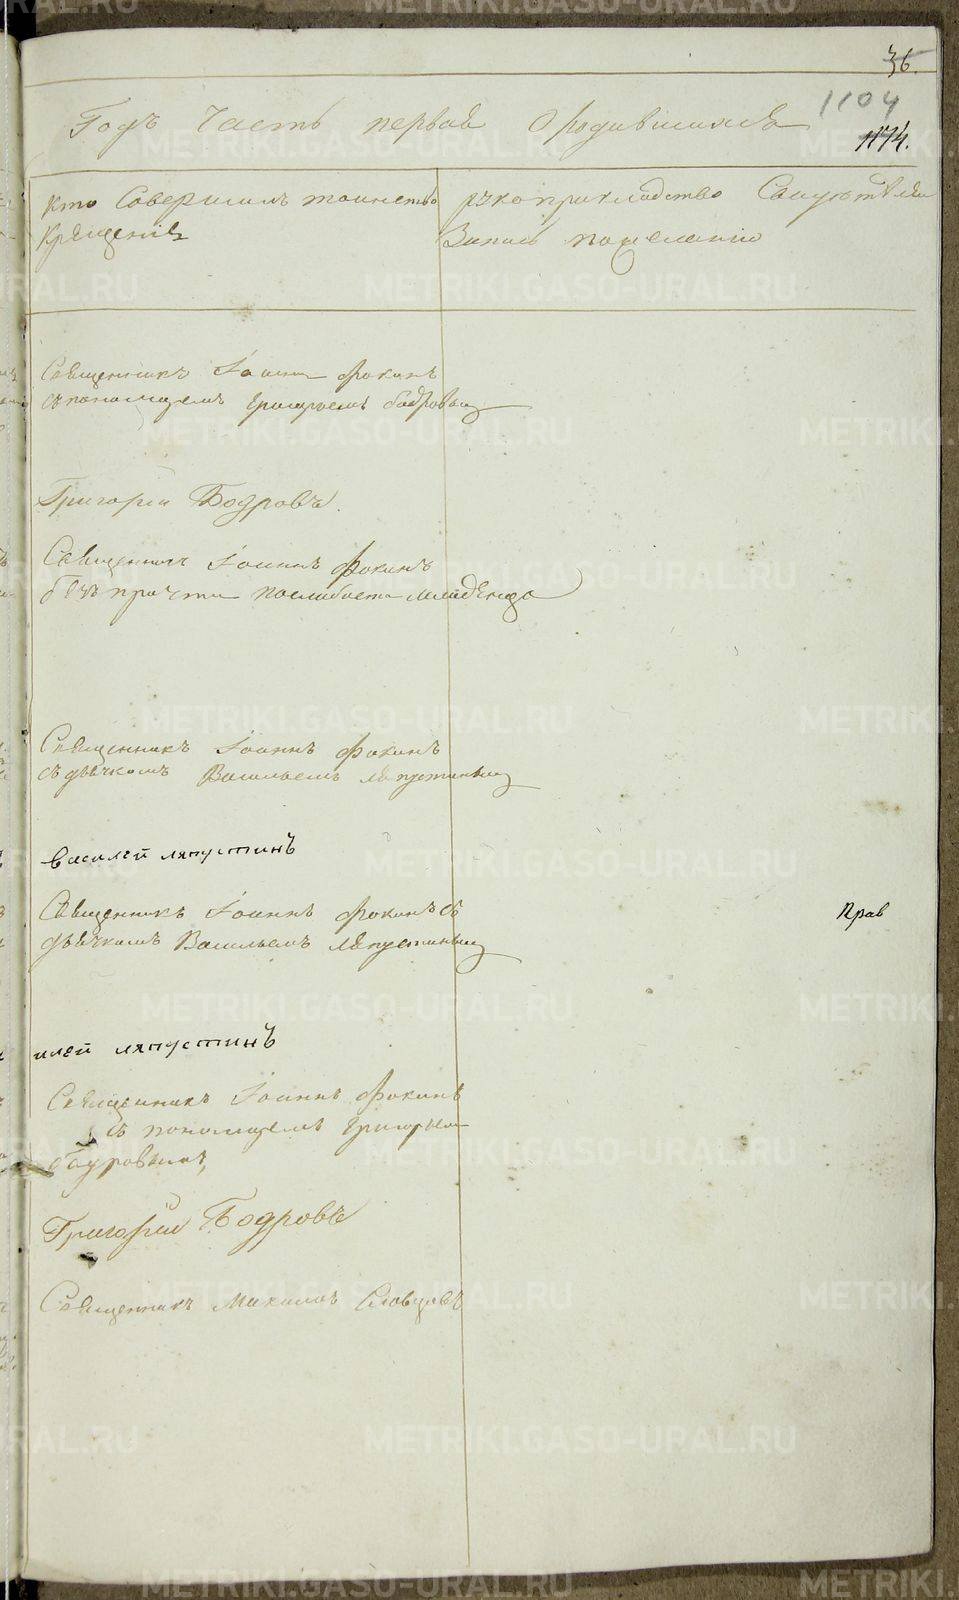 36.
1104
1174.
Годъ Часть первая О родившихся
Кто Совершилъ таинство
Крещенія
рукоприкладство Свидѣтелей
Запись по желанію
Священникъ Іоаннъ Фокинъ
съ пономаремъ Григорьемъ Бодровымъ
Григорій Бодровъ.
Священникъ Іоаннъ Фокинъ
безъ причта по слабости младенца
Священникъ Іоаннъ Фокинъ
съ дьячкомъ Васильемъ Ляпустинымъ
василей ляпустинъ
Священникъ Іоаннъ Фокинъ съ
дьячкомъ Васильемъ Ляпустинымъ
Прав
илей ляпустинъ
Священникъ Іоаннъ Фокинъ
съ пономаремъ Григорьем
Бодровымъ,
Григорій Бодровъ
Священникъ Михаилъ Словцовъ